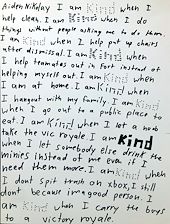 Aiden Nikolay I am kind when I
help clean. I am kind when I do
things without people asking me to do them.
I am kind when I help put up chairs
after dismissal. I am kind when
I help teamates out in Fort instead of
helping myself out. I am kind when
I am at home. I am kind when
I hangout with my family. I am kind
when I go out in a public place to
eat. I am kind when I let a noob
take the vic royale. I am kind
when I let somebody else drink the
minies instead of me even if I
need them more. I am kind when
I dont spit trash on xbox, I still
dont because im a good person. I
am kind when I carry the boys
to a victory royale.